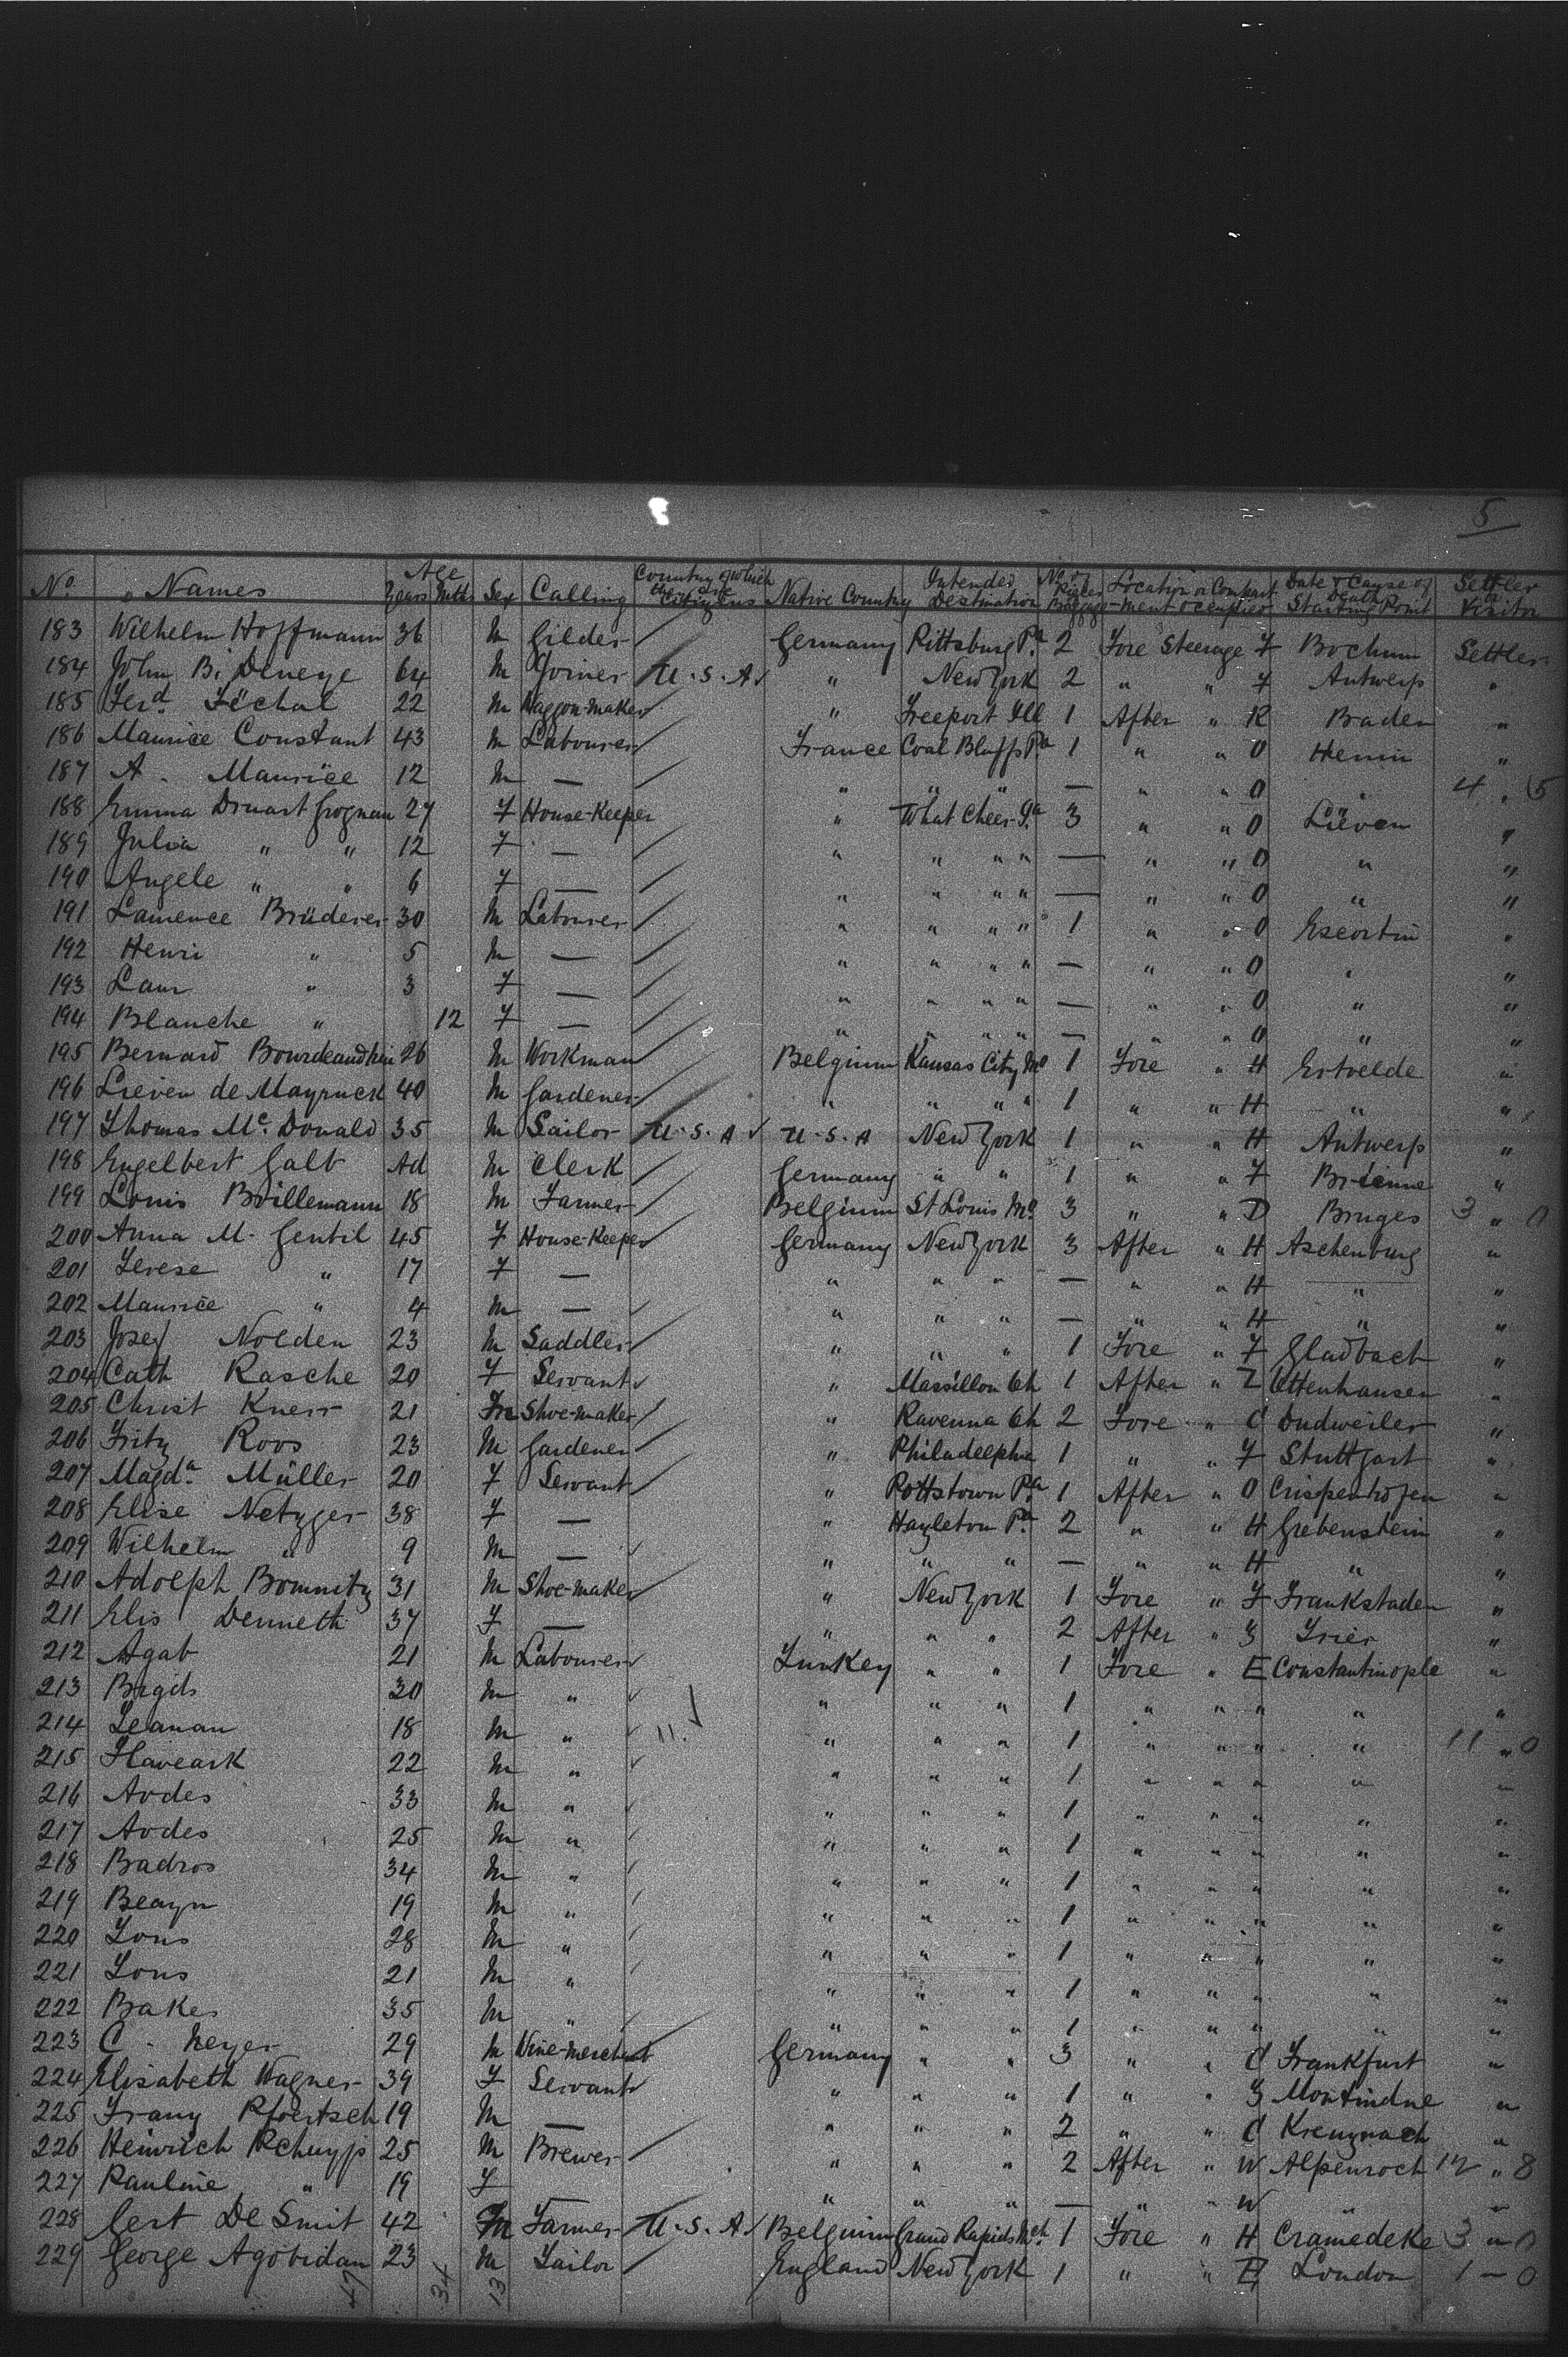 5
No. Names Age Years Mths Sex Calling Country of which they are Citizens Native Country Intended Destination No. of Pieces Baggage Location or Compartment occupied Date & Cause of Death Starting Point Settler or Visitor
183 Wilhelm Hoffmann 36 M Gilder Germany Pittsburg Pa. 2 Fore Steerage F Bochum Settler
184 John B. Deneye 64 M Joiner U.S.A " New York 2 " " F Antwerp "
185 Ferd. Féchal 22 M Waggon-maker " Freeport Ill 1 After " R Baden "
186 Maurice Constant 43 M Labourer France Coal Bluffs Pa 1 " " O Henin "
187 A. Maurice 12 M — " " " — " " O " 4 . 5
188 Emma Druart Grognau 27 F House-Keeper " What Cheer Ia 3 " " O Liéven "
189 Julia " " 12 F — " " " " — " " O " "
190 Angele " " 6 F — " " " " — " " O " "
191 Laurence Brüderer 30 M Labourer " " " " 1 " " O Escortin "
192 Henri " 5 M — " " " " — " " O " "
193 Laur " 3 F — " " " " — " " O " "
194 Blanche " 12 F — " " " " — " " O " "
195 Bernard 26 M Workman Belgium Kansas City Mo 1 Fore " H Ertvelde "
196 Lieven de Mayruck 40 M Gardener " " " " 1 " " H " "
197 Thomas Mc. Donald 35 M Sailor U.S.A U.S.A New York 1 " " H Antwerp "
198 Engelbert Galb Ad M Clerk Germany " " 1 " " F "
199 Louis Brillemann 18 M Farmer Belgium St Louis Mo. 3 " " D Bruges 3 " 0
200 Anna M. Gentil 45 F House-Keeper Germany New York 3 After " H Aschenburg "
201 Terese " 17 F — " " " — " " H " "
202 Maurice " 4 M — " " " — " " H " "
203 Josef Nolden 23 M Saddler " " " 1 Fore " F Gladbach "
204 Cath Rasche 20 F Servant " Massillon Oh 1 After " Z Ottenhausen "
205 Christ Knerr 21 M Shoe-maker " Ravenna Oh 2 Fore " C Dudweiler "
206 Fritz Roos 23 M Gardener " Philadelphia 1 " " F Stuttgart "
207 Magda. Müller 20 F Servant " Pottstown Pa. 1 After " O Crispenhofen "
208 Elise Netzger 38 F — " Hazleton Pa. 2 " " H Grebenstein "
209 Wilhelm " 9 M — " " " — " " H " "
210 Adolph Bomnitz 31 M Shoe-maker " New York 1 Fore " F Frankstaden "
211 Elis Denneth 37 F — " " " 2 After " Z Trier "
212 Agab 21 M Labourer Turkey " " 1 Fore " E Constantinople "
213 Bagds 30 M " " " " 1 " " " " "
214 Leanan 18 M " 11. " " " 1 " " " " 11 " 0
215 Flaveark 22 M " " " " 1 " " " " "
216 Avdes 33 M " " " " 1 " " " " "
217 Avdes 25 M " " " " 1 " " " " "
218 Badros 34 M " " " " 1 " " " " "
219 Beazn 19 M " " " " 1 " " " " "
220 Lous 28 M " " " " 1 " " " " "
221 Lous 21 M " " " " 1 " " " " "
222 Baker 35 M " " " " 1 " " " " "
223 C. Meyer 29 M Wine-merchant Germany " " 3 " " C Frankfurt "
224 Elisabeth Wagner 39 F Servant " " " 1 " " Z "
225 Franz Pfoertsch 19 M — " " " 2 " " C Kreuznach "
226 Heinrich 25 M Brewer " " " 2 After " W Alpenroch 17 " 8
227 Pauline " 19 F — " " " — " " W " "
228 Gert De Smit 42 M Farmer U.S.A. Belgium Grand Rapids Mch. 1 Fore " H Cramedeke 3 " 0
229 George Agobidan 23 M Tailor England New York 1 " " E London 1 — 0
47 34 13